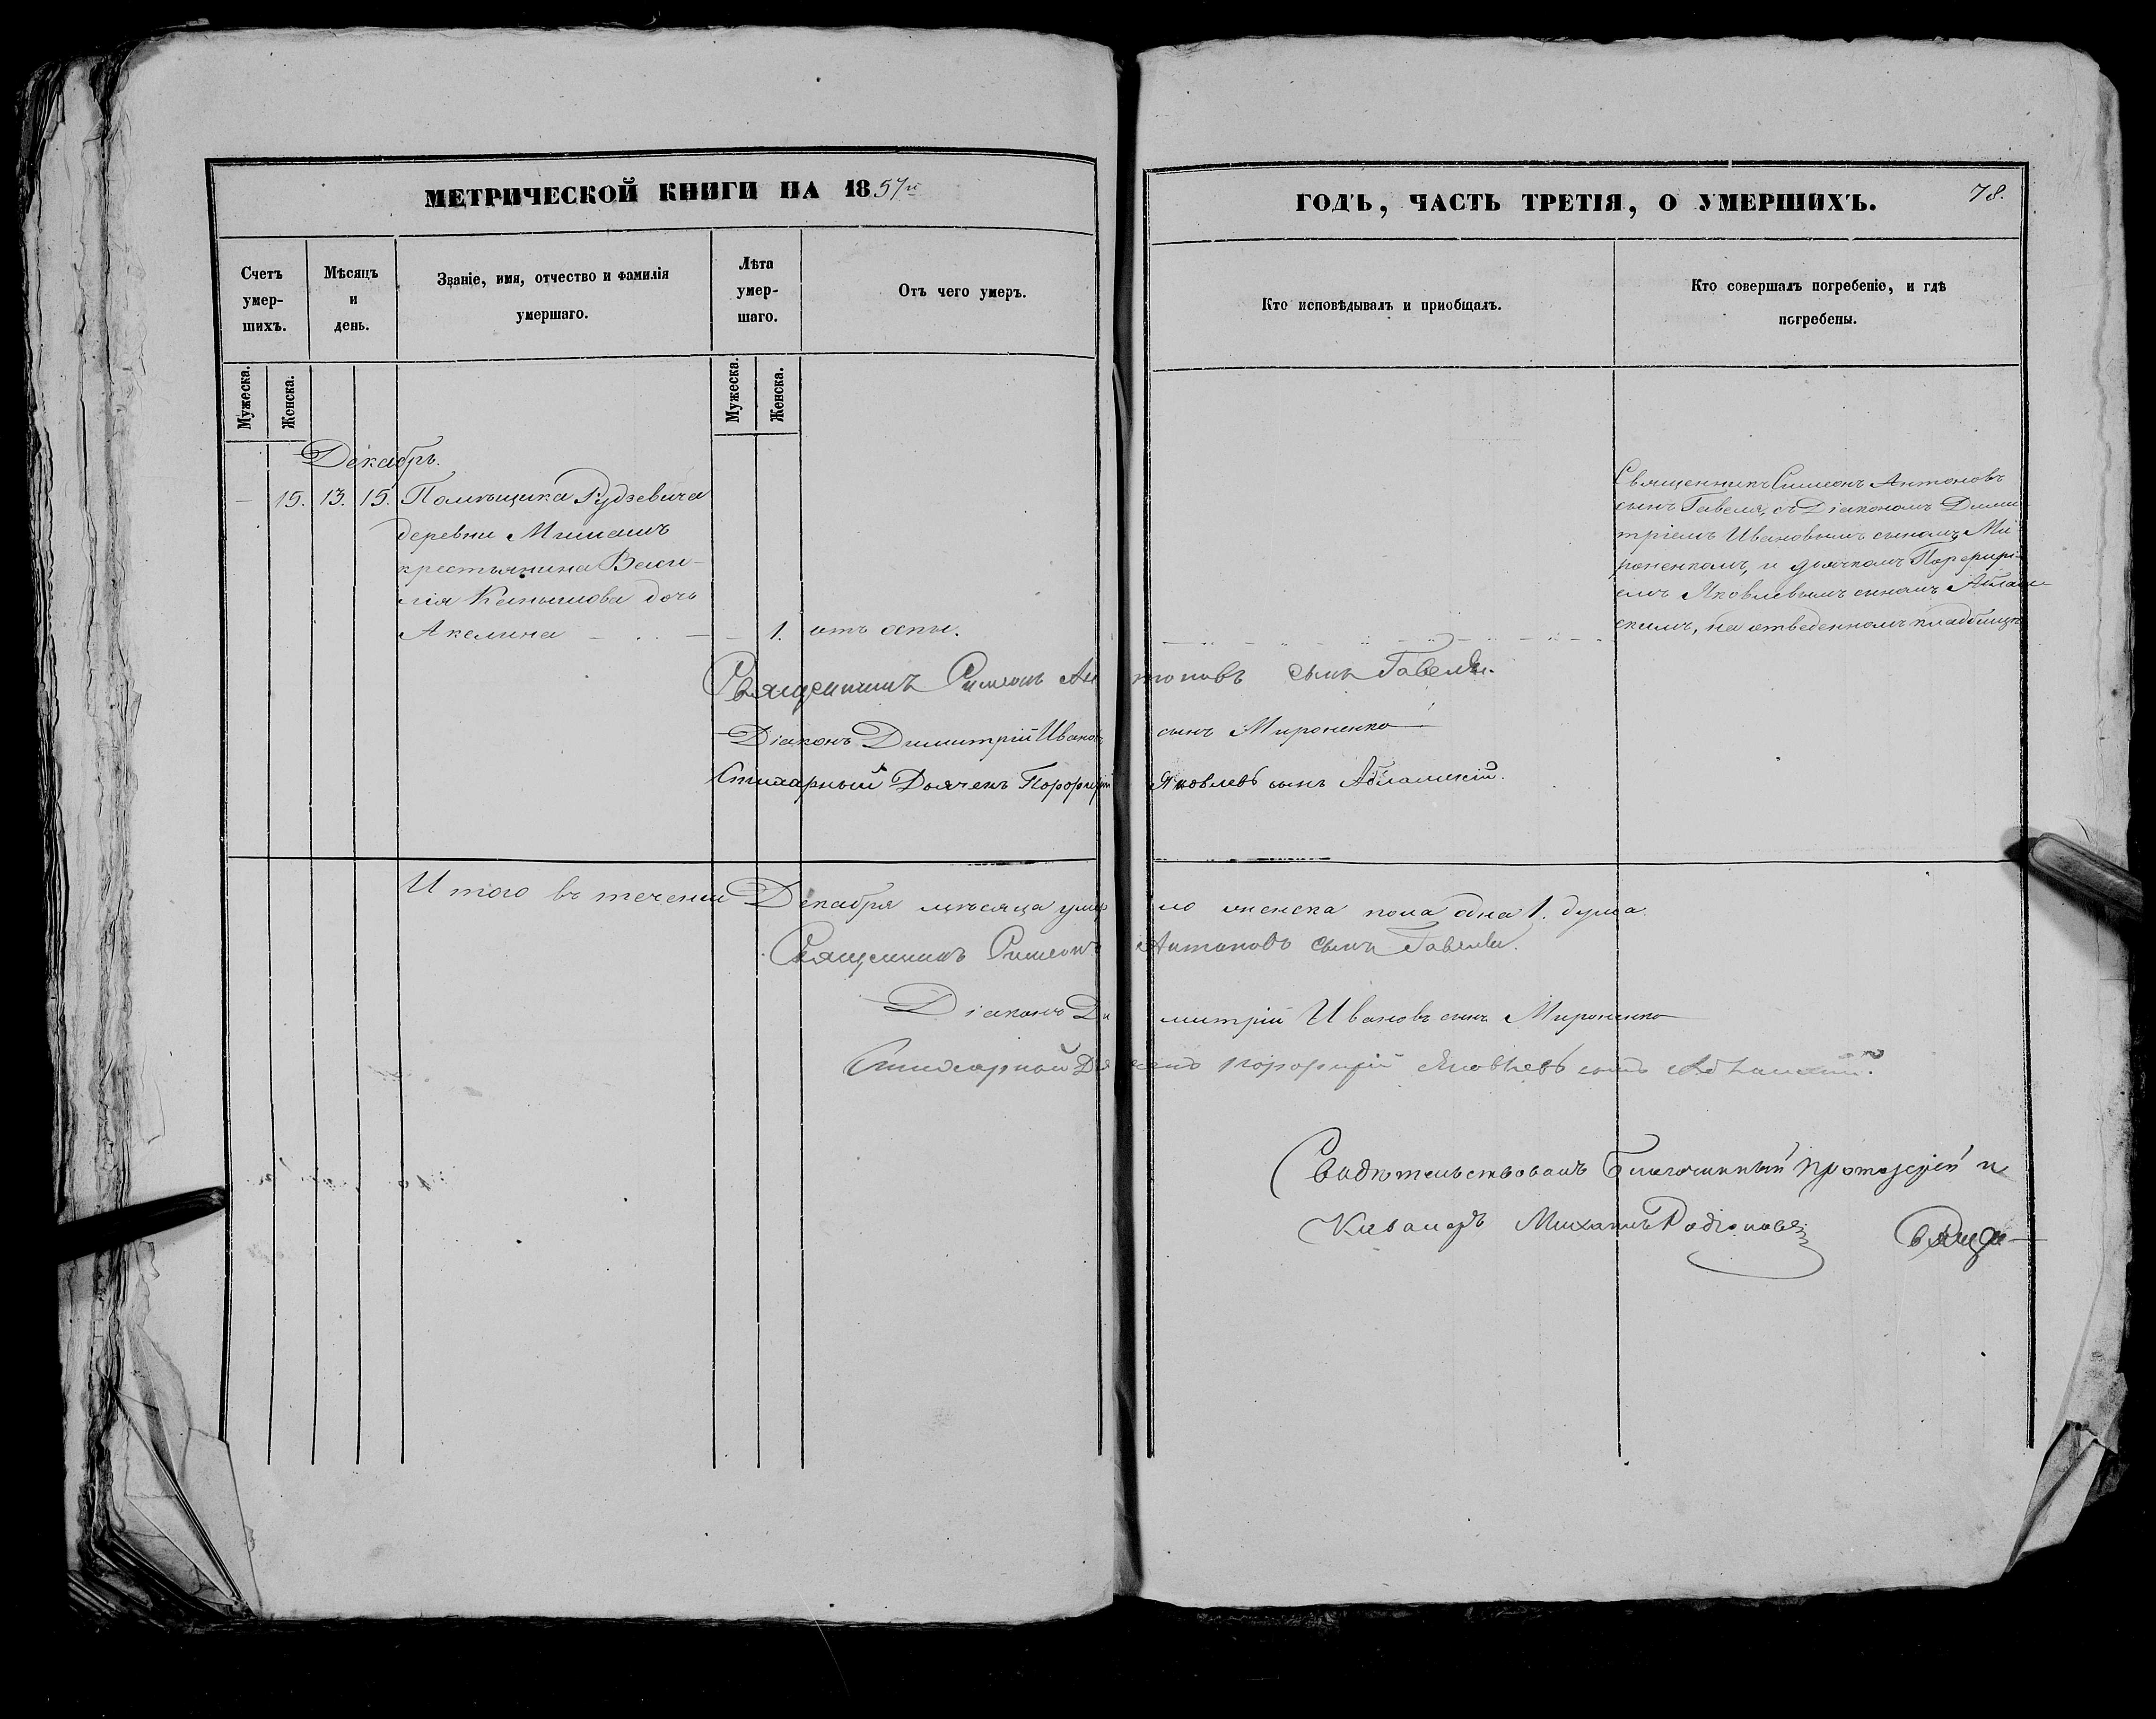 МЕТРИЧЕСКОЙ КНИГИ НА 1857й
ГОДЪ, ЧАСТЬ ТРЕТІЯ, О УМЕРШИХЪ.
78.
Счетъ умер-шихъ.
Мѣсяцъ и день.
Званіе, имя, отчество и фамилія умершаго.
Лѣта умер-шаго.
Отъ чего умеръ.
Кто исповѣдывалъ и пріобщалъ.
Кто совершалъ погребеніе, и гдѣ погребены.
Мужеска.
Женска.
Мужеска.
Женска.
Декабрь.
— 15. 13. 15. Помѣщика Рудзевича
деревни
крестьянина Васи-
лія дочь
Акелина — 1. отъ оспы.
Священникъ Симеонъ Антоновъ
сынъ Гавеля, съ Діакономъ Дими-
тріемъ Ивановымъ сыномъ Ми-
роненкомъ, и дьячкомъ Порфирі-
емъ Яковлевымъ сыномъ Абламс-
кимъ, на отведенномъ кладбищѣ
Священникъ Симеонъ Антоновъ сынъ Гавеля.
Діаконъ Димитрій Ивановъ сынъ Мироненко
Стихарный Дьячекъ Порфирій Яковлевъ сынъ Абламскій.
Итого въ теченіи Декабря мѣсяца умерло женска пола одна 1. душа.
Священникъ Симеонъ Антоновъ сынъ Гавеля.
Діаконъ Димитрій Ивановъ сынъ Мироненко
Стихарный Дьячекъ Порфирій Яковлевъ сынъ Абламскій.
Свидѣтельствовалъ Благочинный Протоіерей и
Кавалеръ Михаилъ Родіоновъ